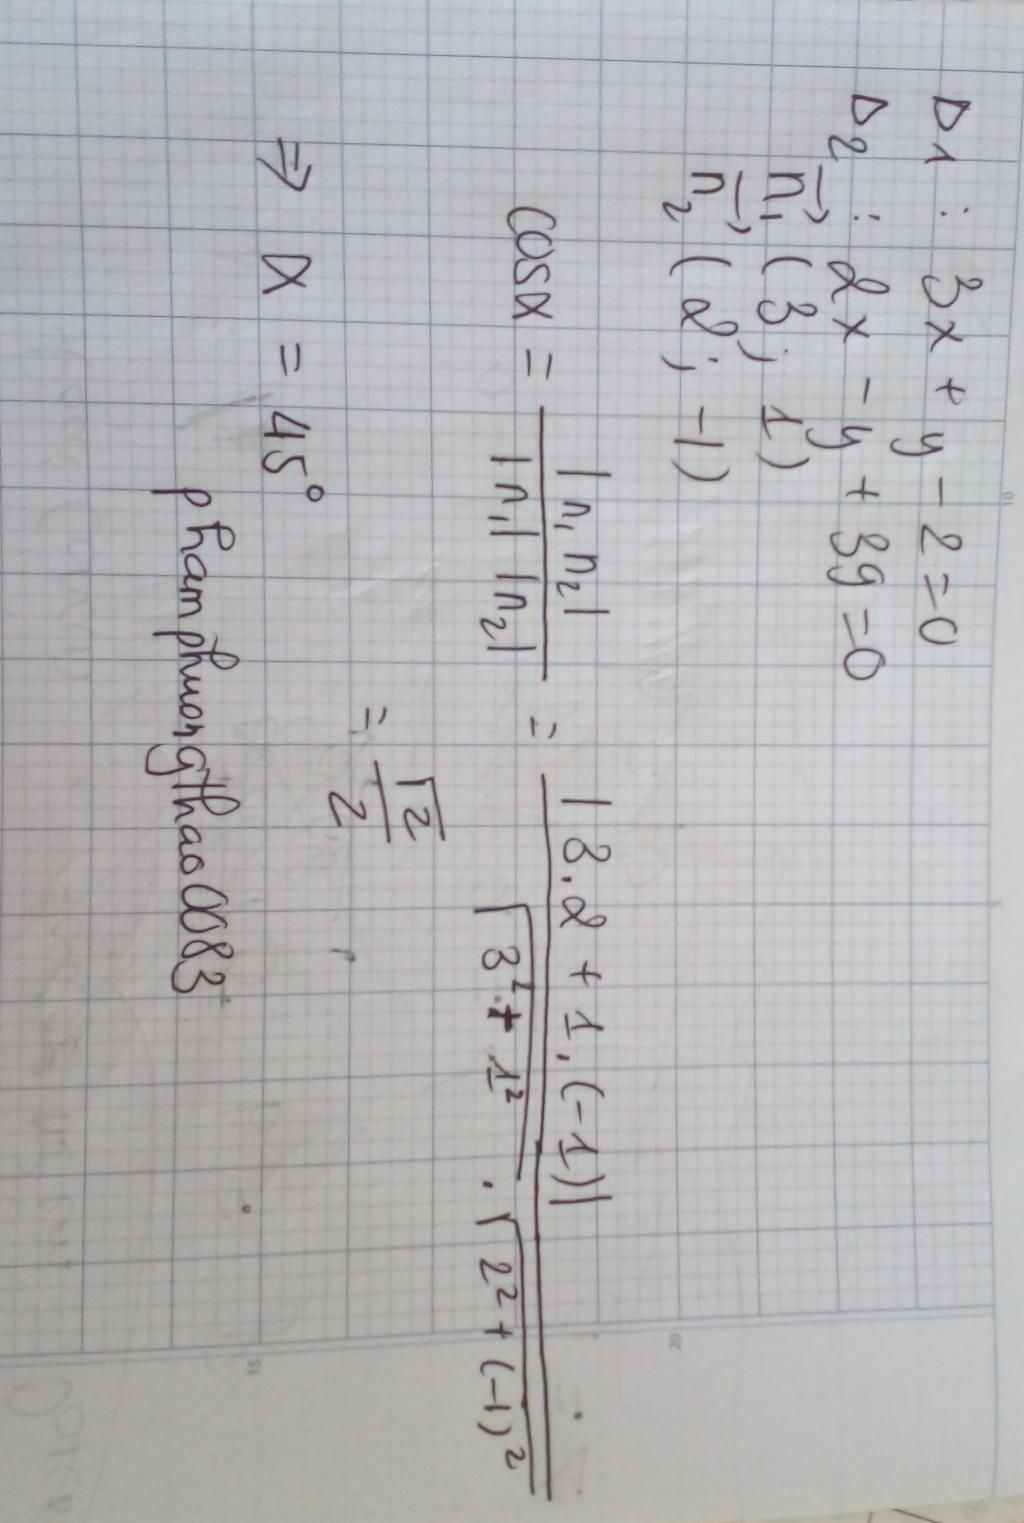 Δ1 : 3x + y - 2 = 0
Δ2 : 2x - y + 39 = 0
n₁→ (3; 1)
n₂→ (2; -1)
cosα = |n₁ n₂| / |n₁| |n₂| = |3.2 + 1.(-1)| / √(3² + 1²) . √(2² + (-1)²)
= √2 / 2
⇒ α = 45°
phamphuongthao0083
10
5
20
15